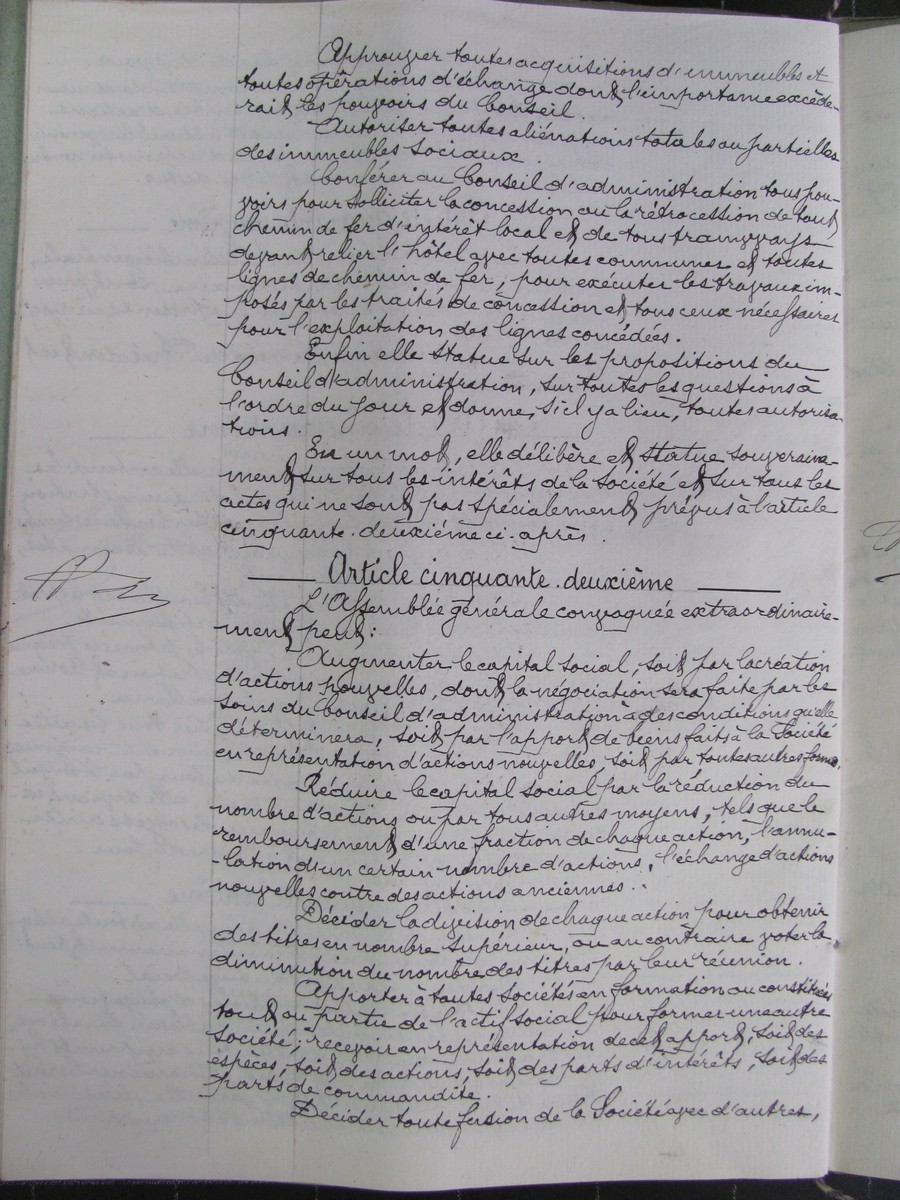 Approuver toutes acquisitions d'immeubles et
toutes opérations d'échange dont l'importance excéde-
rait les pouvoirs du Conseil.
Autoriser toutes aliénations totales ou partielles
des immeubles sociaux.
Conférer au Conseil d'administration tous pou-
voirs pour solliciter la concession ou la rétrocession de tout
chemin de fer d'intérêt local et de tous tramways
devant relier l'hôtel avec toutes communes et toutes
lignes de chemin de fer, pour exécuter les travaux im-
posés par les traités de concession et tous ceux nécessaires
pour l'exploitation des lignes concédées.
Enfin elle statue sur les propositions du
Conseil d'administration, sur toutes les questions à
l'ordre du jour et donne, s'il y a lieu, toutes autorisa-
tions.
En un mot, elle délibère et statue souveraine-
ment sur tous les intérêts de la Société et sur tous les
actes qui ne sont pas spécialement prévus à l'article
cinquante-deuxième ci-après.
Article cinquante-deuxième
L'Assemblée générale convoquée extraordinaire-
ment peut :
Augmenter le capital social, soit par la création
d'actions nouvelles, dont la négociation sera faite par les
soins du Conseil d'administration à des conditions qu'elle
déterminera, soit par l'apport de biens faits à la Société
en représentation d'actions nouvelles soit par toutes autres formes.
Réduire le capital social par la réduction du
nombre d'actions ou par tous autres moyens, tels que le
remboursement d'une fraction de chaque action, l'annu-
-lation d'un certain nombre d'actions, l'échange d'actions
nouvelles contre des actions anciennes..
Décider la division de chaque action pour obtenir
des titres en nombre supérieur, ou au contraire voter la
diminution du nombre des titres par leur réunion.
Apporter à toutes Sociétés en formation ou constituées
tout ou partie de l'actif social pour former une autre
Société; recevoir en représentation de cet apport, soit des
espèces, soit des actions, soit des parts d'intérêts, soit des
parts de commandite.
Décider toute fusion de la Société avec d'autres,